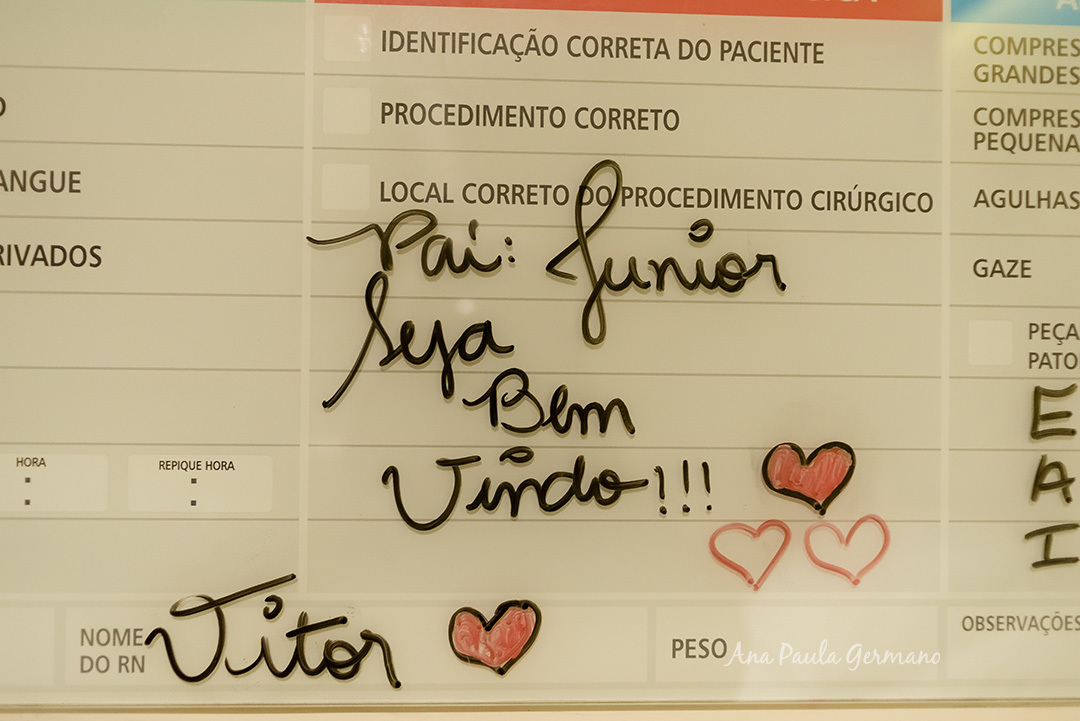 IDENTIFICAÇÃO CORRETA DO PACIENTE
PROCEDIMENTO CORRETO
LOCAL CORRETO DO PROCEDIMENTO CIRÚRGICO
ANGUE
RIVADOS
Pai: Junior
Seja
Bem
Vindo!!!
COMPRES
GRANDES
COMPRES
PEQUENA
AGULHAS
GAZE
PEÇA
PATO
E
A
I
HORA
: 
REPIQUE HORA
:
NOME
DO RN
Vitor
PESO
OBSERVAÇÕES
Ana Paula Germano